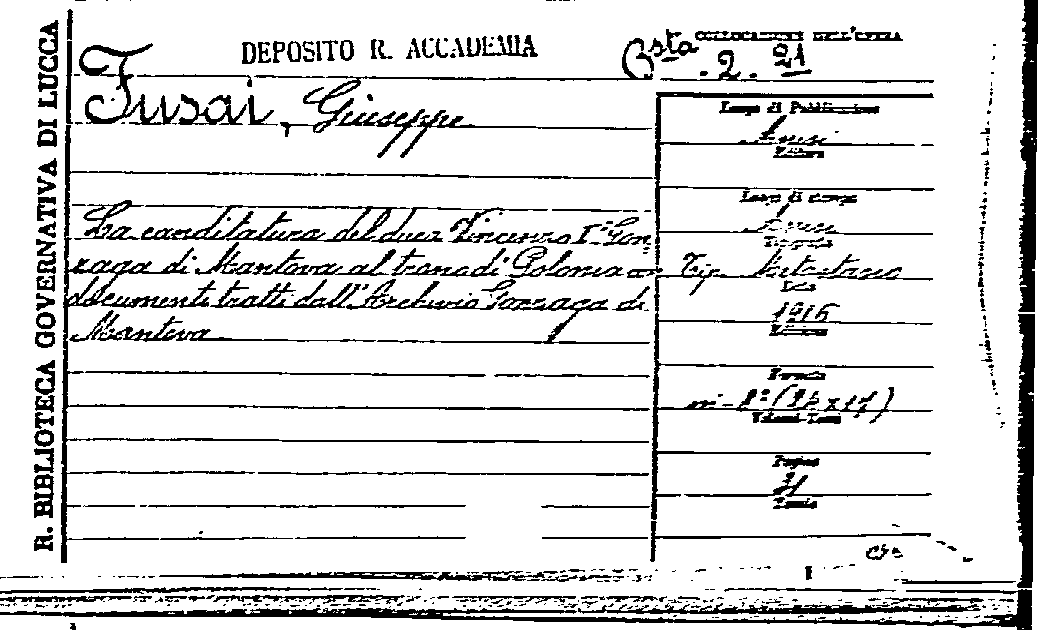 R. BIBLIOTECA GOVERNATIVA DI LUCCA
DEPOSITO R. ACCADEMIA
COLLOCAZIONE DELL'OPERA
Bsta. 2. 21
Fusai, Giuseppe
La canditatura del duca Vincenzo I° Gon
zaga di Mantova al trono di Polonia
documenti tratti dall'Archivio Gonzaga di
Mantova
Luogo di Pubblicazione
Editore
Luogo di stampa
Tipografia
Tip.
Data
1916
Edizione
Formato
in-8° (
Volumi-Tomi
Pagine
Tavole